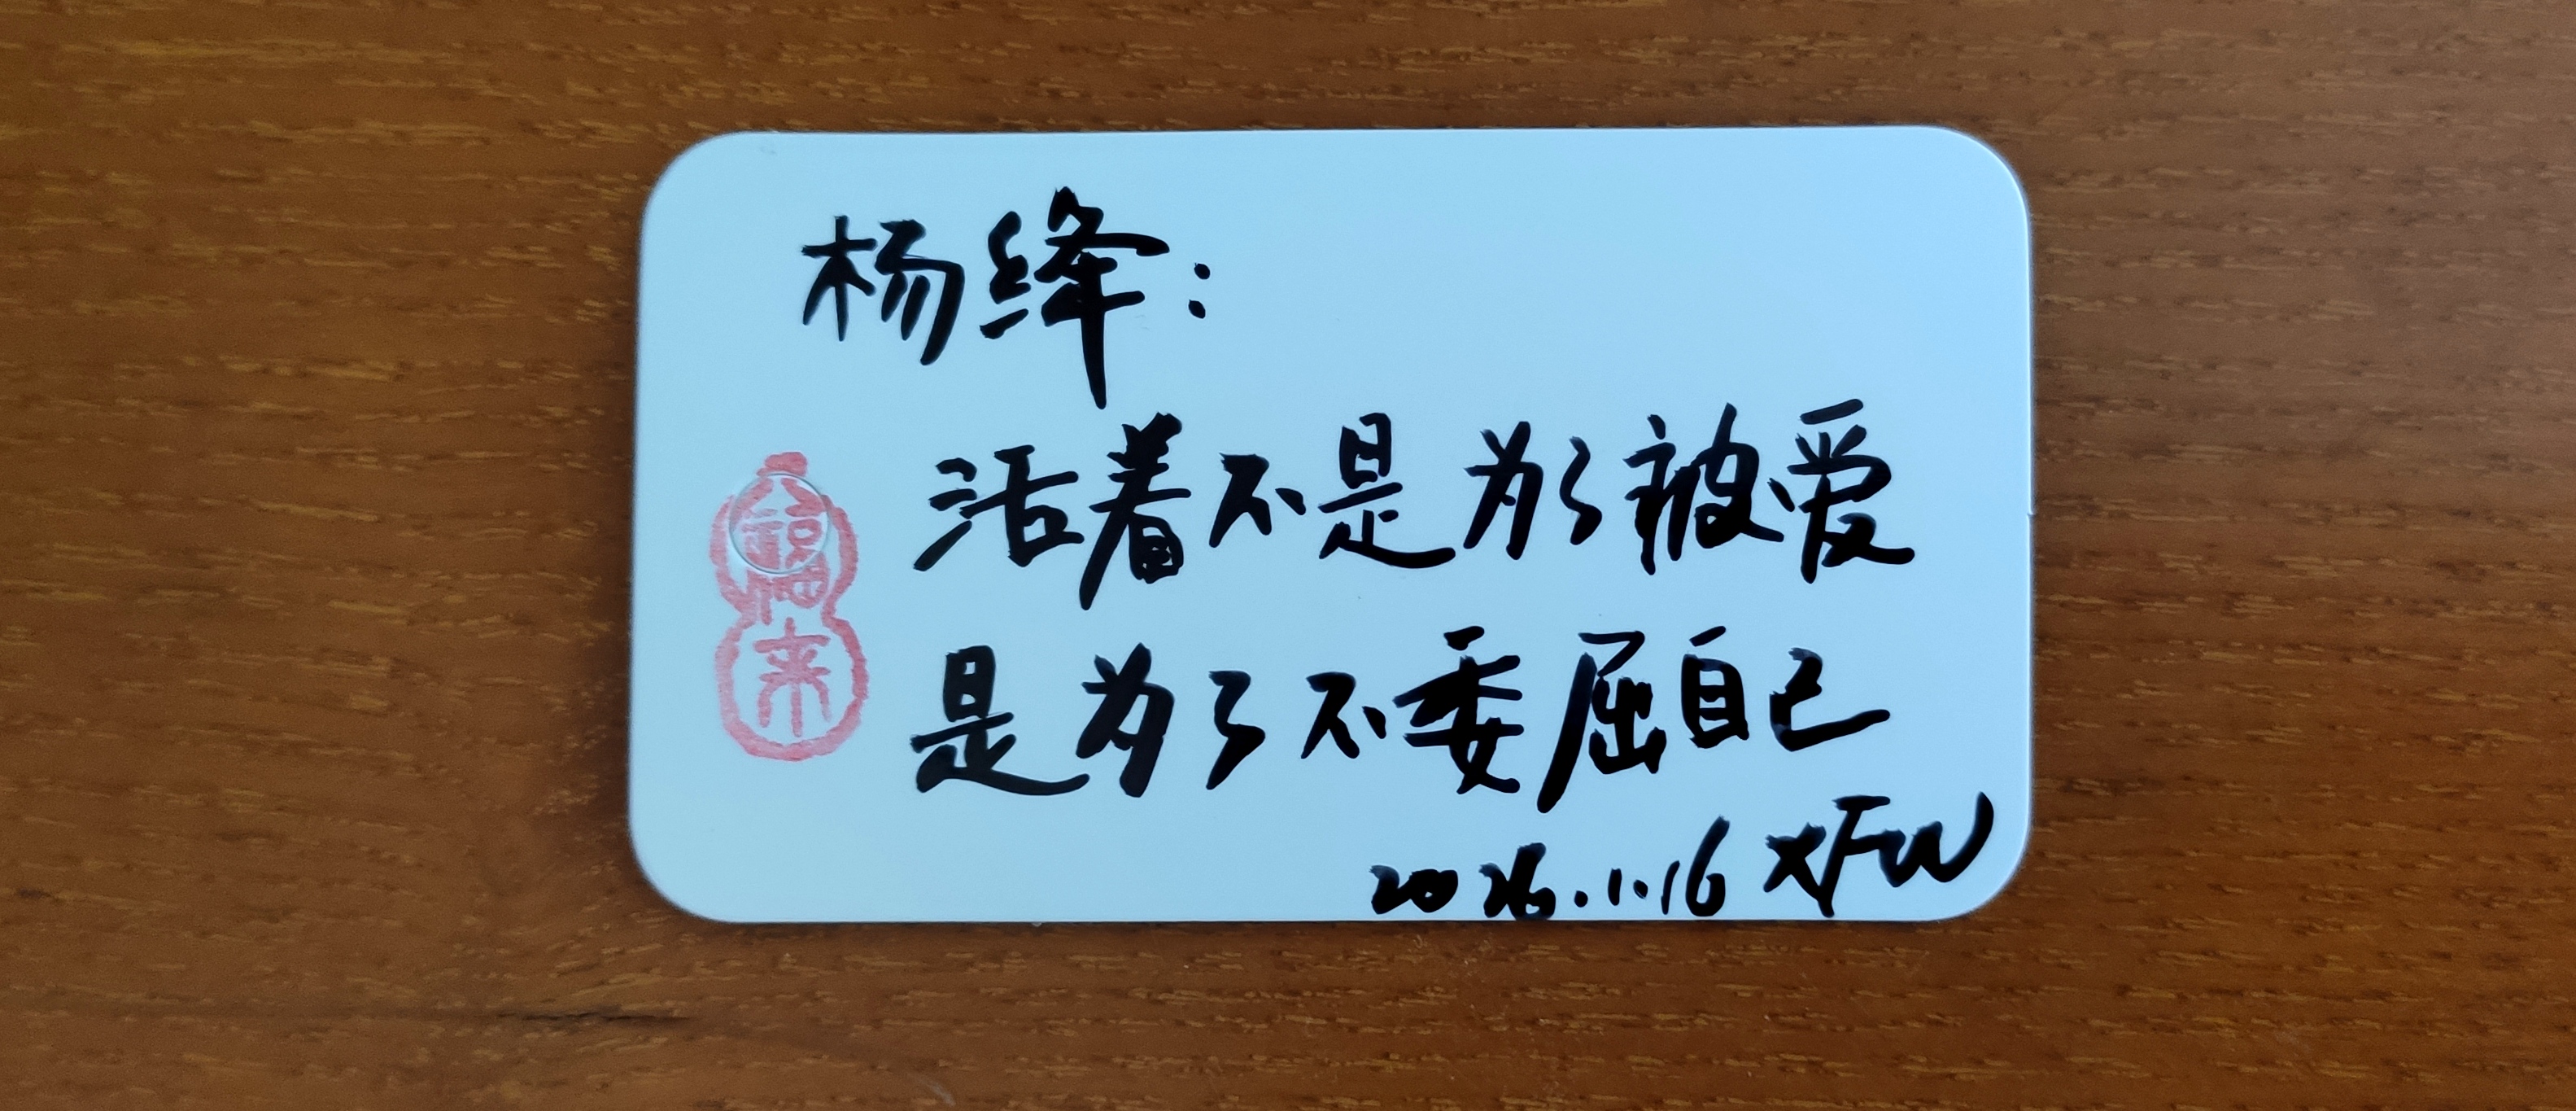 杨绛：
活着不是为了被爱
是为了不委屈自己
2026.1.16 XFW
来